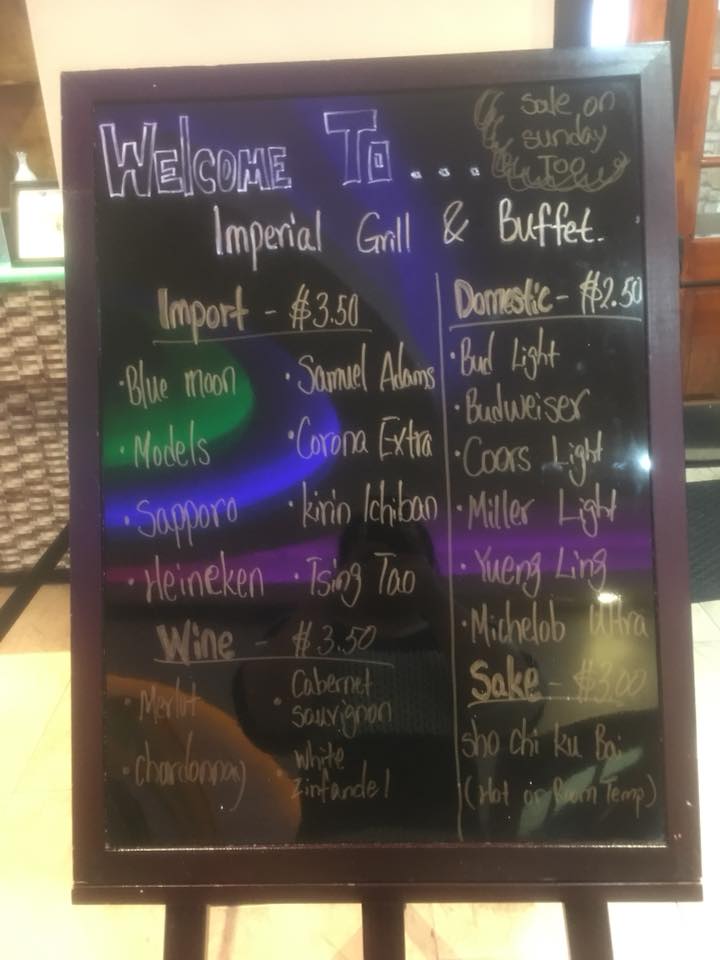 Welcome To...
sale on
sunday
Too
Imperial Grill & Buffet.
Import - $3.50
• Blue moon
• Samuel Adams
• Models
• Corona Extra
• Sapporo
• kirin Ichiban
• Heineken
• Tsing Tao
Wine - $3.50
• Merlot
• Cabernet
sauvignon
• chardonnay
• white
zinfandel
Domestic - $2.50
• Bud Light
• Budweiser
• Coors Light
• Miller Light
• Yueng Ling
• Michelob Ultra
Sake - $3.00
sho chi ku Bai
(Hot or Room Temp)